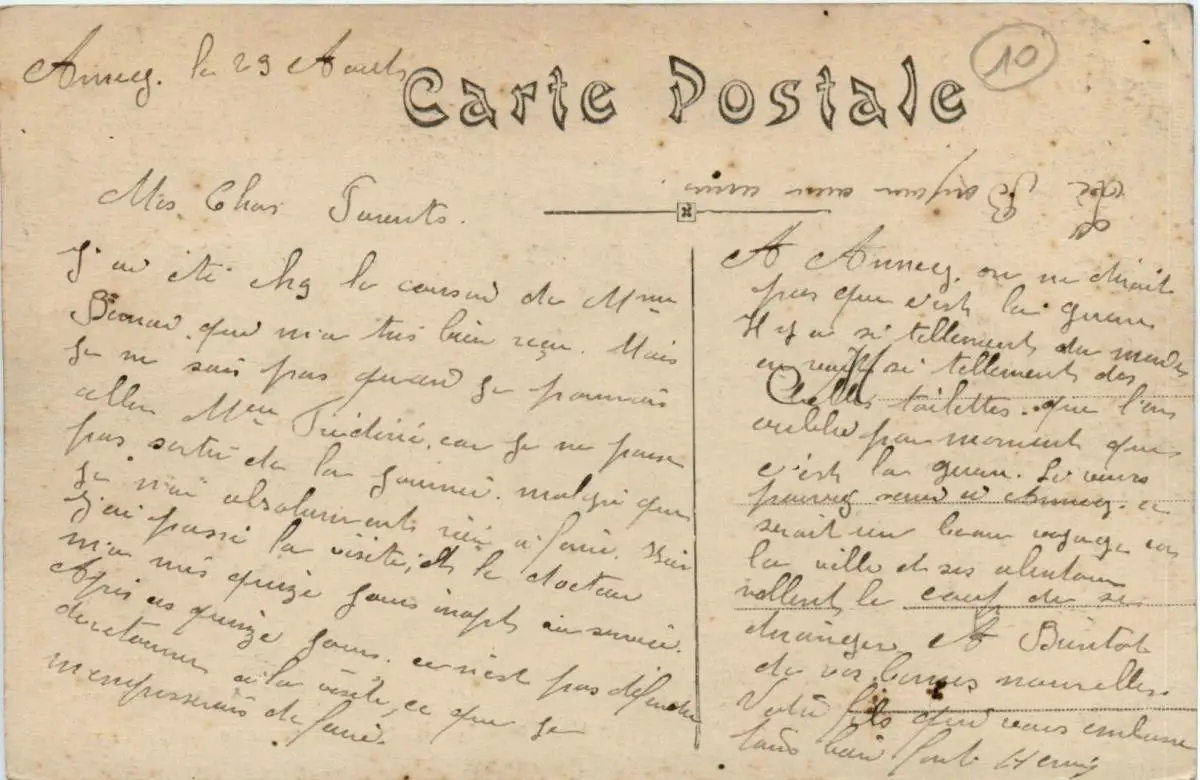 Annecy. le 29 Août
Carte Postale
10
Mes Chers Parents.
J'ai été chez le cousin de Mme
qui m'a très bien reçu. Mais
je ne sais pas quand je pourrais
aller Mme car je ne peux
pas sortir de la journée. malgré que
je n'ai absolument rien à faire. Hier
j'ai passé la visite, et le docteur
m'a mis quinze jours inapte au service.
Après ces quinze jours. ce n'est pas défendu
de retourner à la visite, ce que je
m'empresserais de faire.
A Annecy. on ne dirait
pas que c'est la guerre
Il y a si tellement du monde
en si tellement des
belles toilettes. que l'on
oublie par moment que
c'est la guerre. Si vous
pouviez venir à Annecy. ce
serait un beau voyage car
la ville et ses alentours
vallent le coup de se
déranger. A Bientôt
de vos bonnes nouvelles.
Votre fils qui vous embrasse
tous bien fort Henry